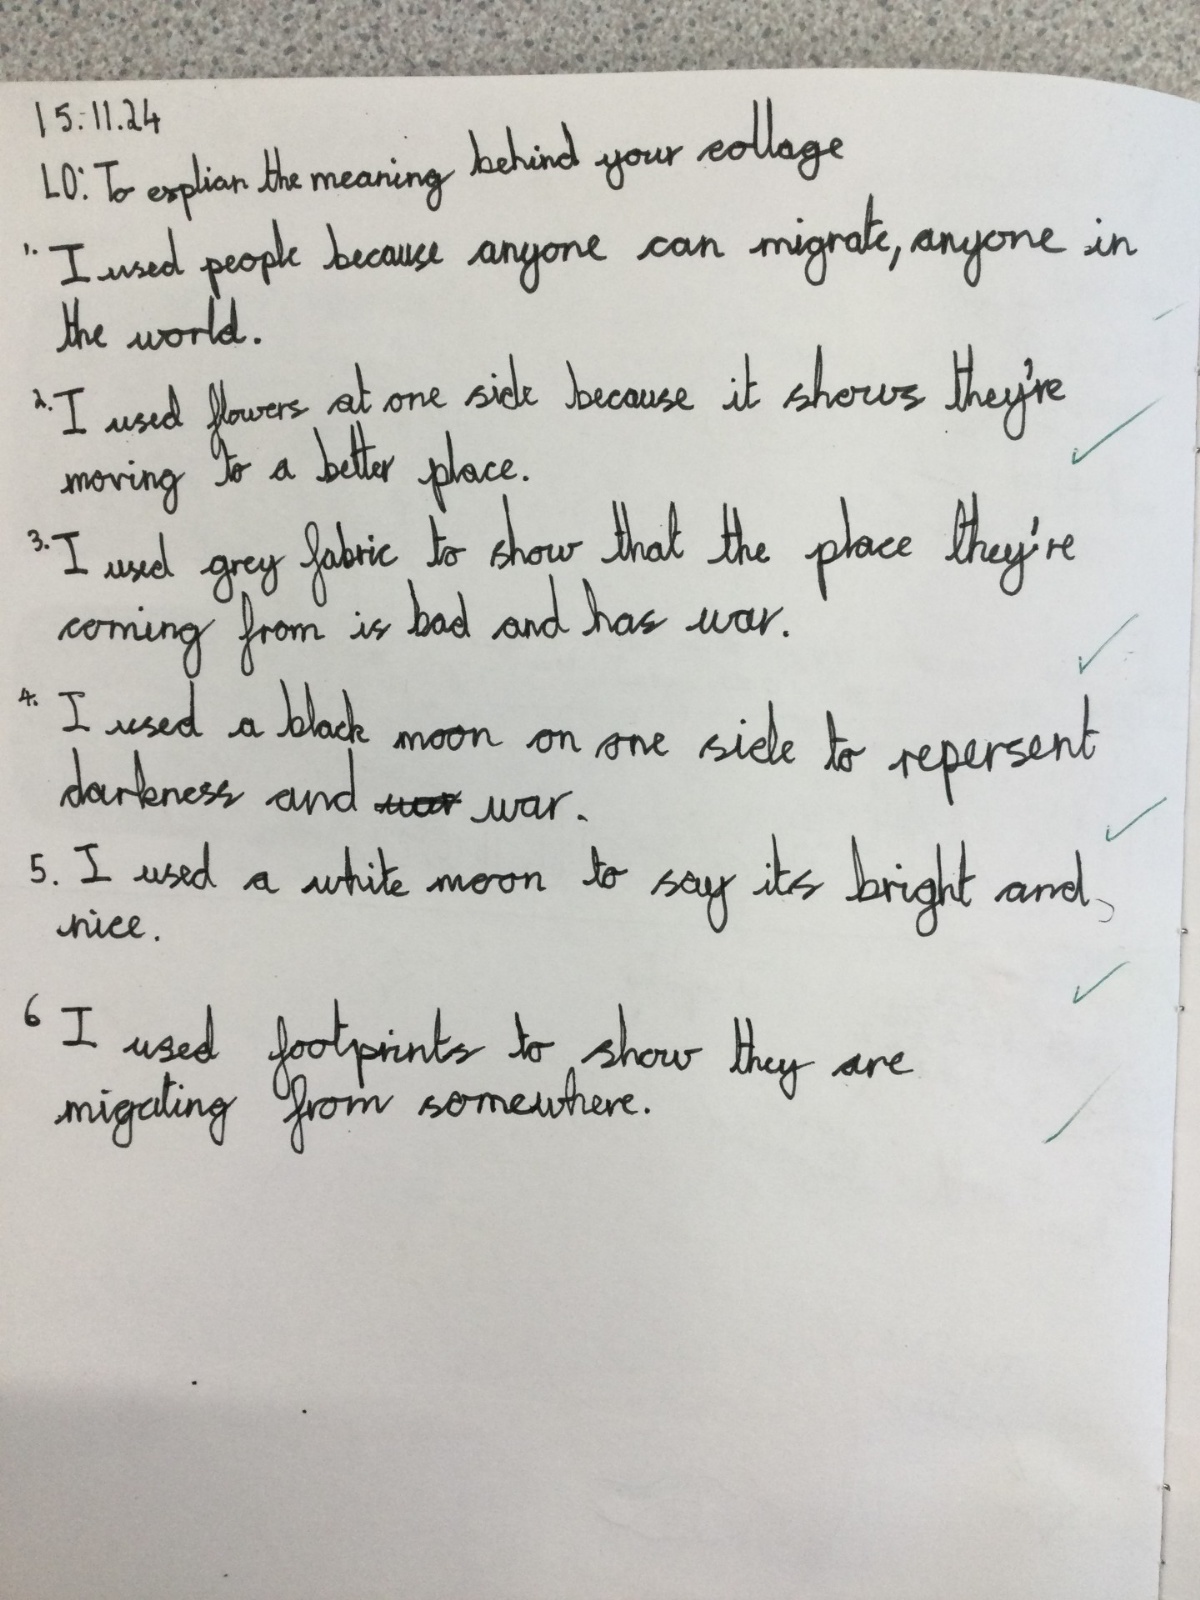 15.11.24
LO: To explian the meaning behind your collage
1. I used people because anyone can migrate, anyone in
the world.
2. I used flowers at one side because it shows they're
moving to a better place.
3. I used grey fabric to show that the place they're
coming from is bad and has war.
4. I used a black moon on one side to repersent
darkness and war war.
5. I used a white moon to say its bright and
nice.
6 I used footprints to show they are
migating from somewhere.